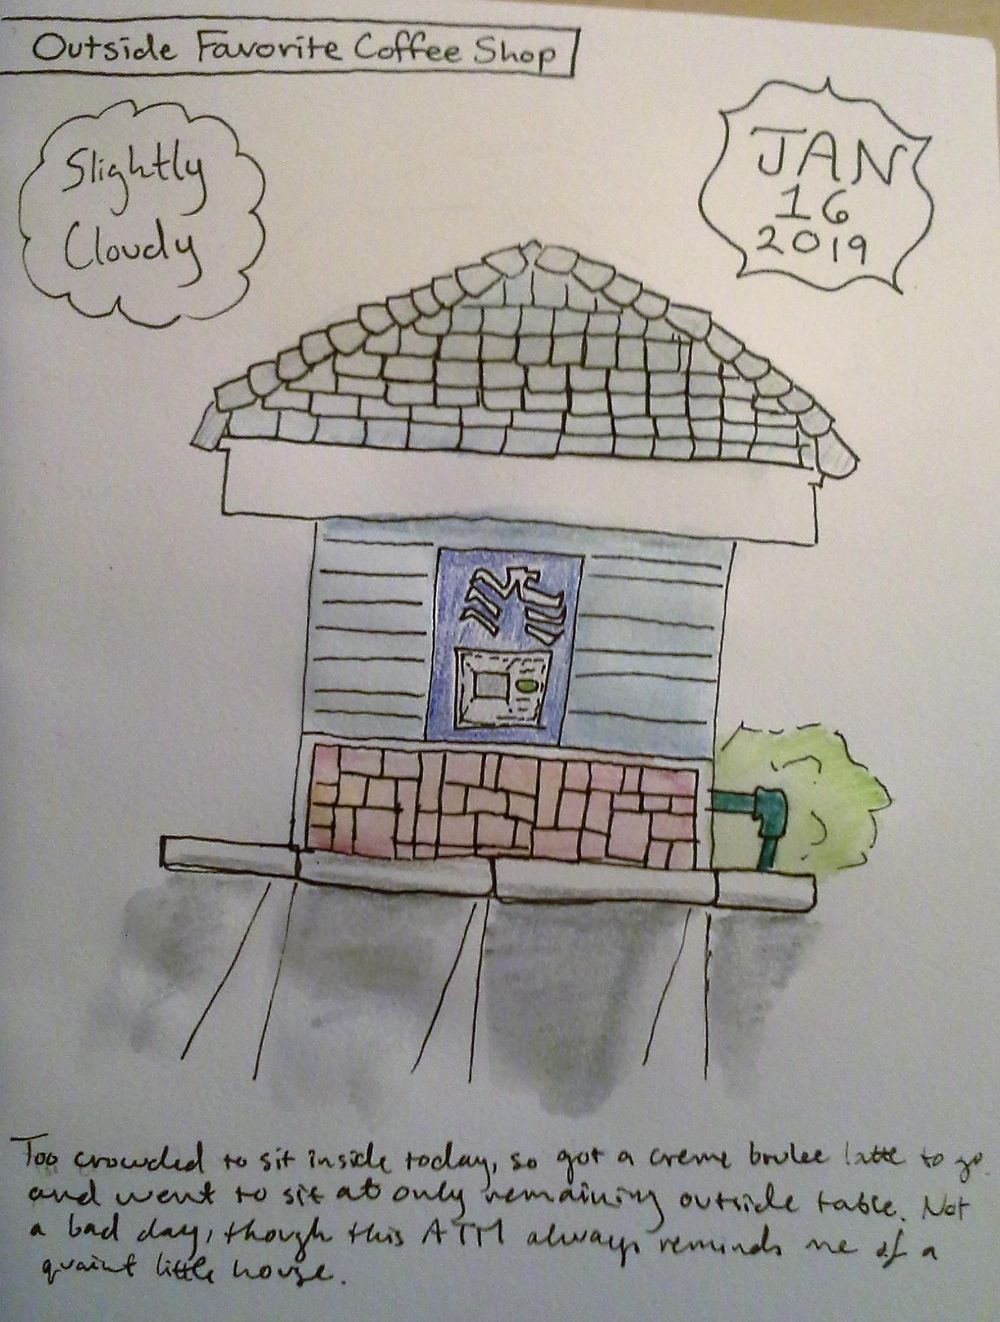 Outside Favorite Coffee Shop
Slightly
Cloudy
JAN
16
2019
Too crowded to sit inside today, so got a creme brulee latte to go
and went to sit at only remaining outside table. Not
a bad day, though this ATM always reminds me of a
quaint little house.